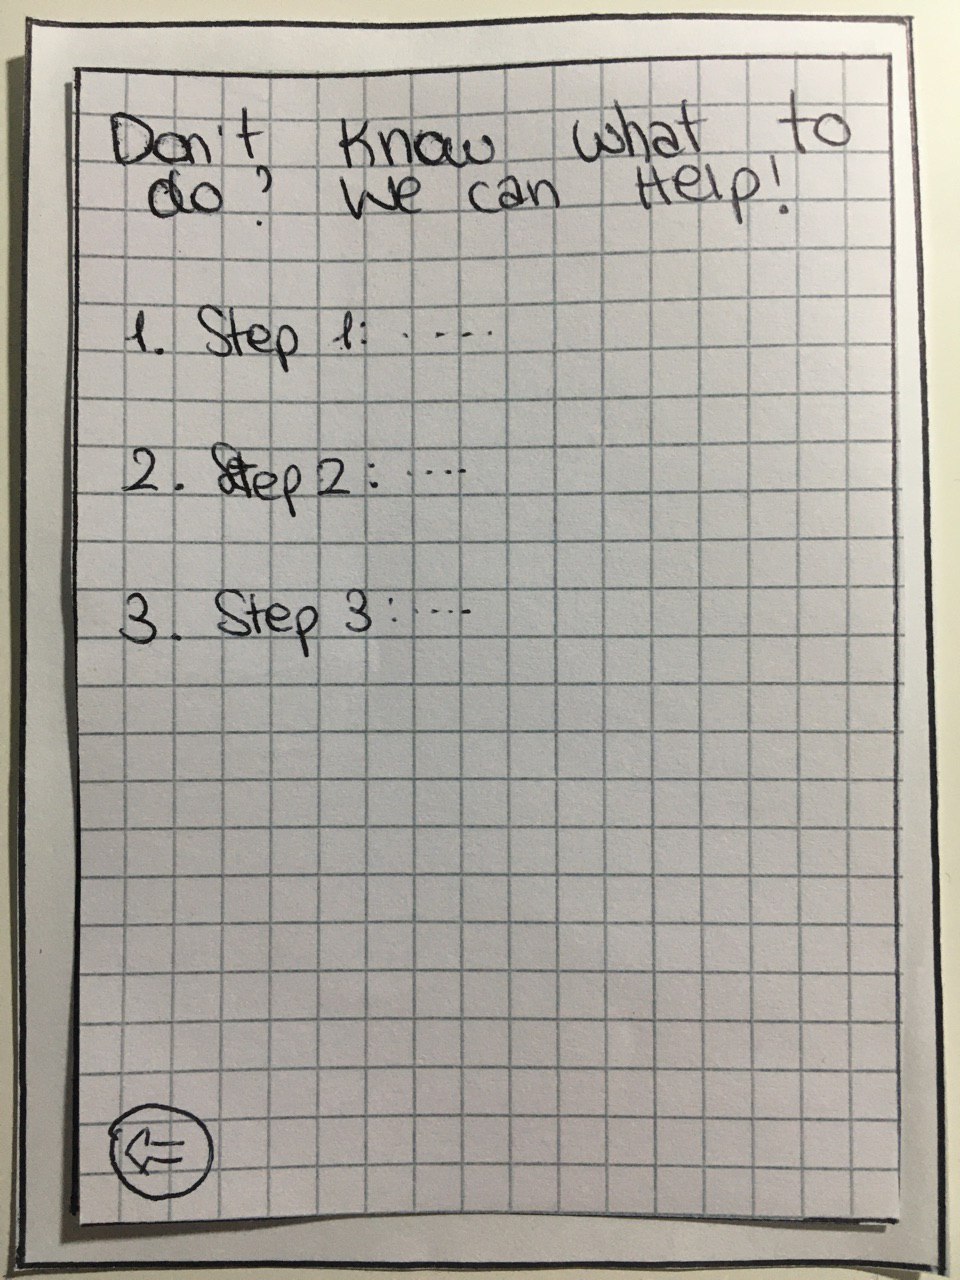 Don't know what to
do? We can Help!
1. Step 1: .....
2. Step 2: ....
3. Step 3: ....